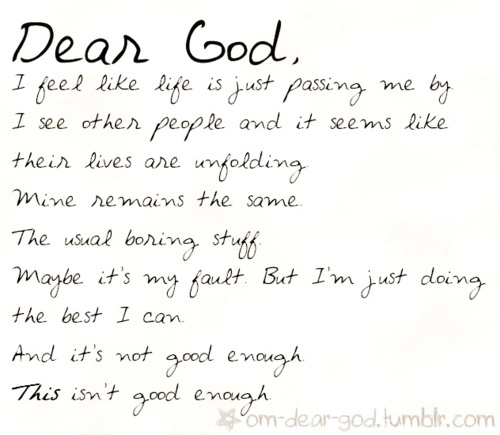 Dear God,
I feel like life is just passing me by.
I see other people and it seems like
their lives are unfolding.
Mine remains the same.
The usual boring stuff.
Maybe it's my fault. But I'm just doing
the best I can.
And it's not good enough.
This isn't good enough.
om-dear-god.tumblr.com